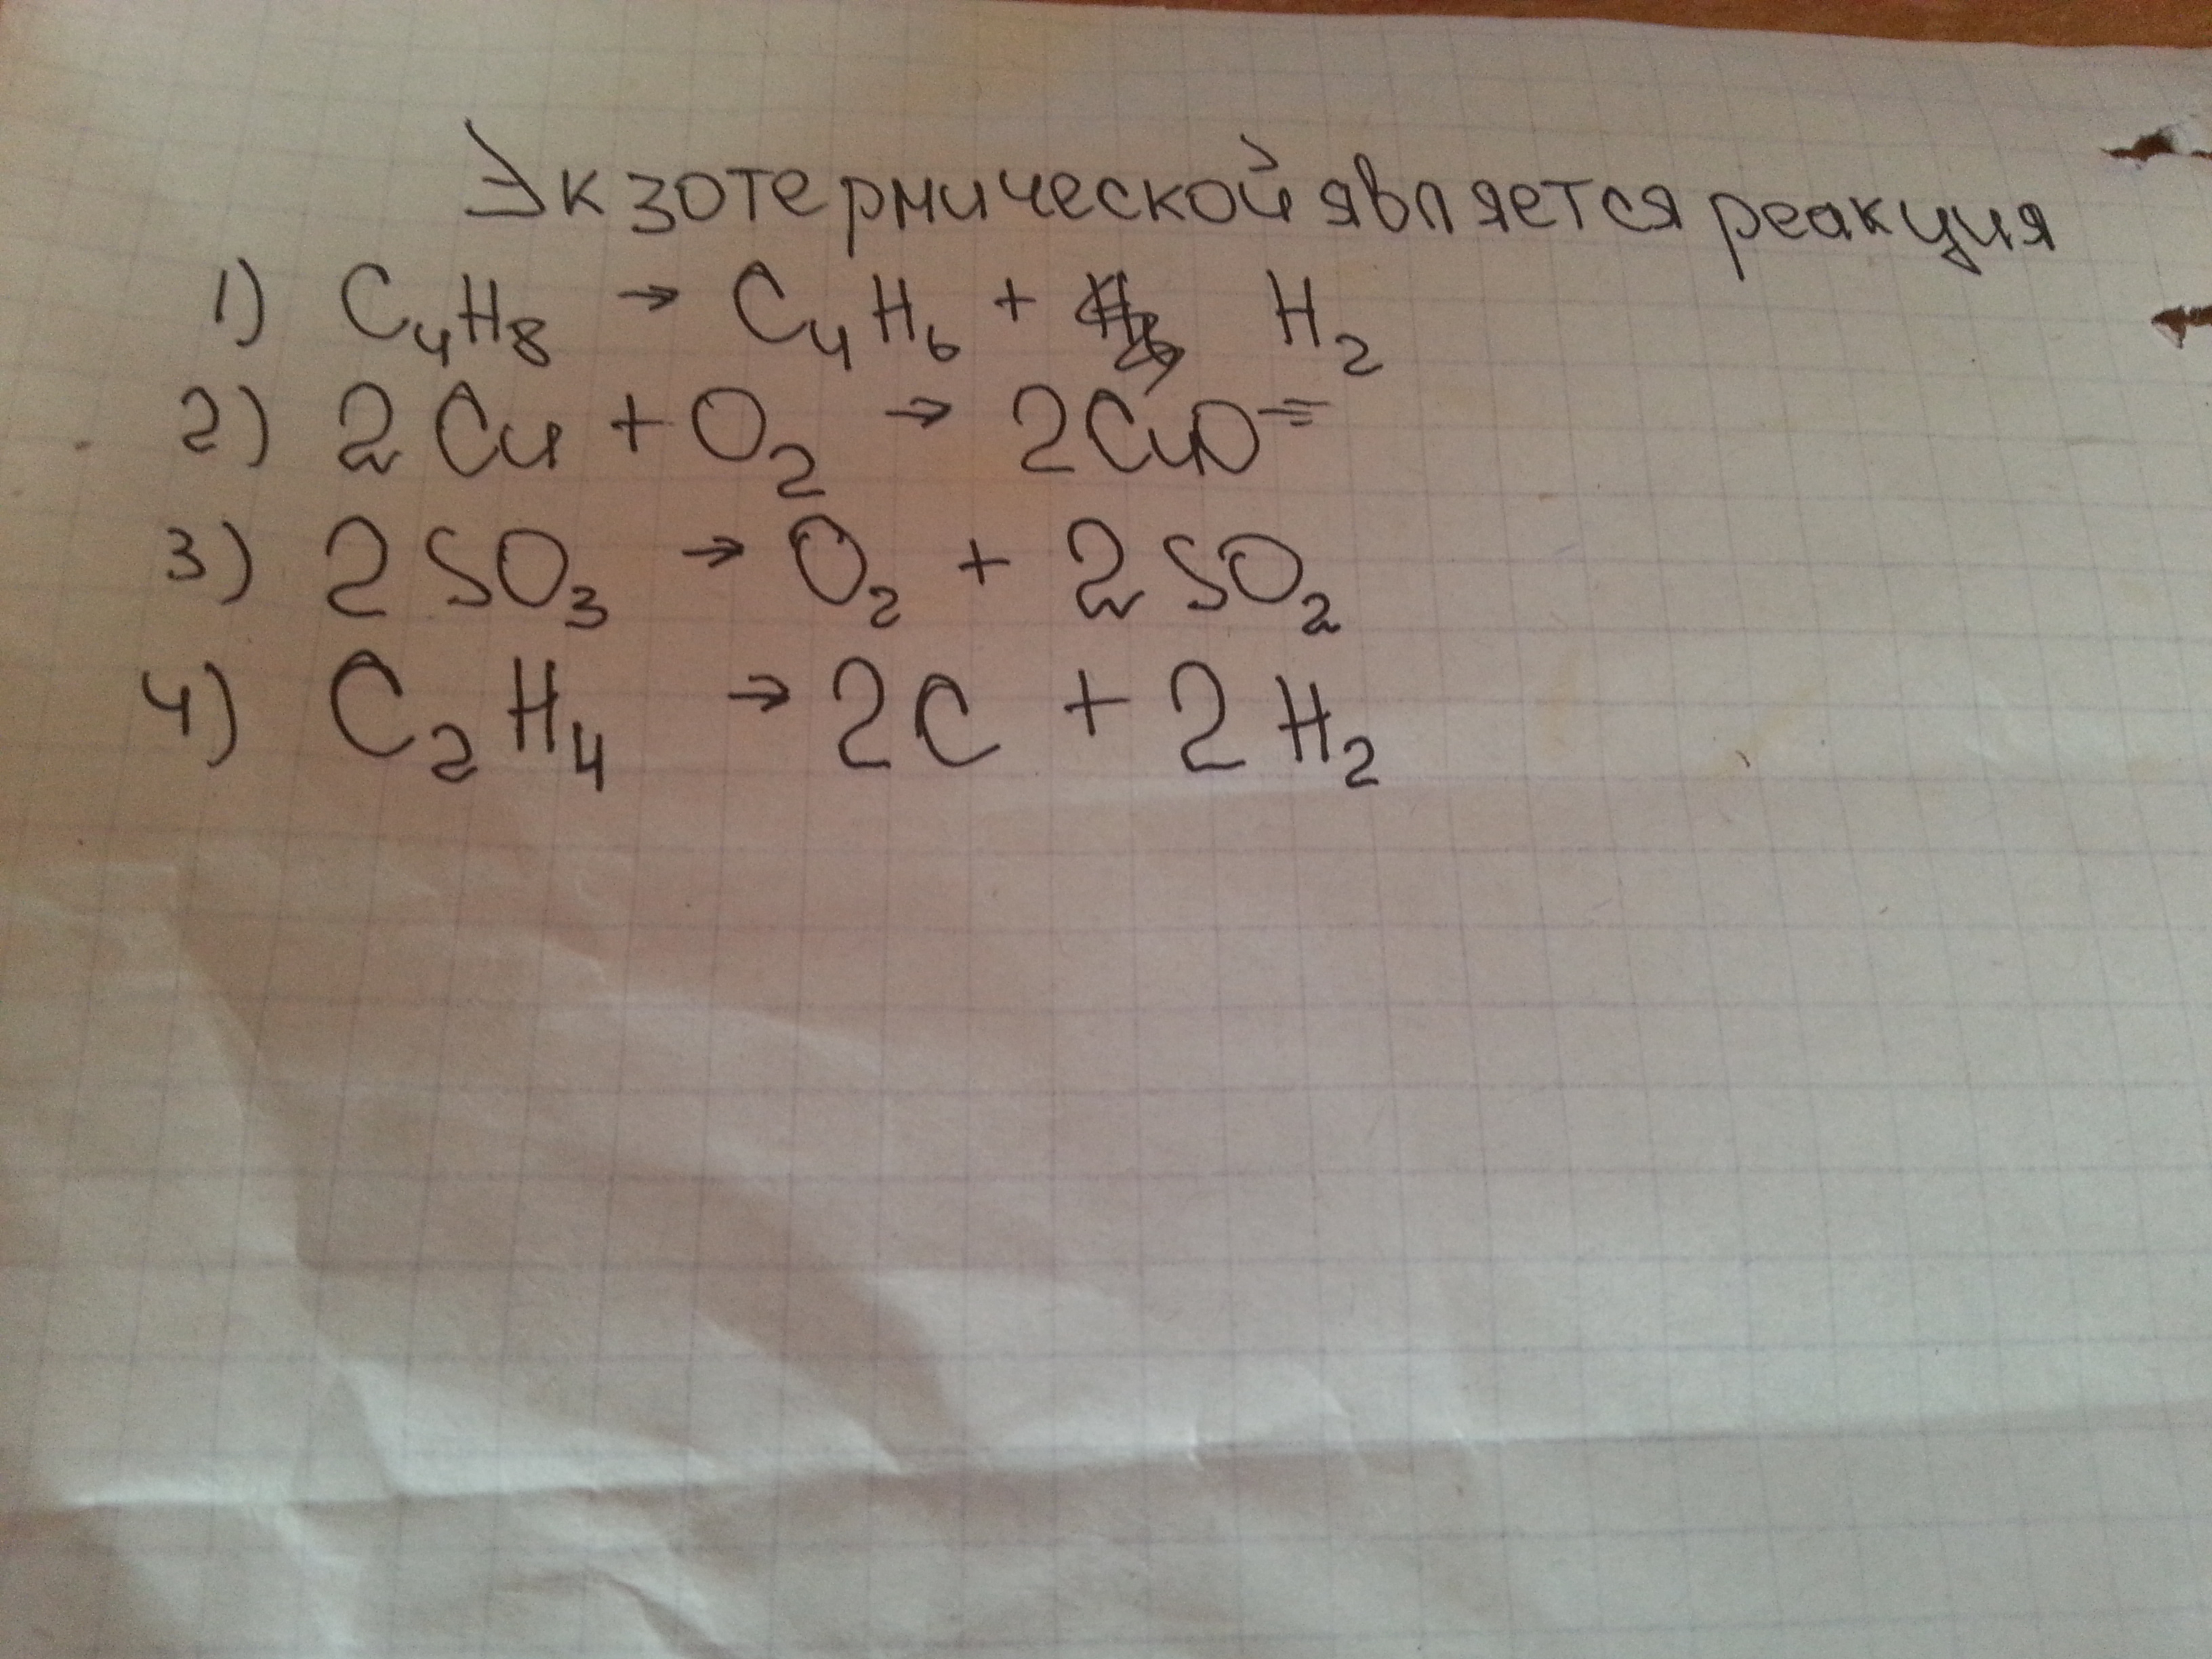 Экзотермической является реакция
1) C₄H₈ → C₄H₆ + H₂
2) 2Cu + O₂ → 2CuO
3) 2SO₃ → O₂ + 2SO₂
4) C₂H₄ → 2C + 2H₂